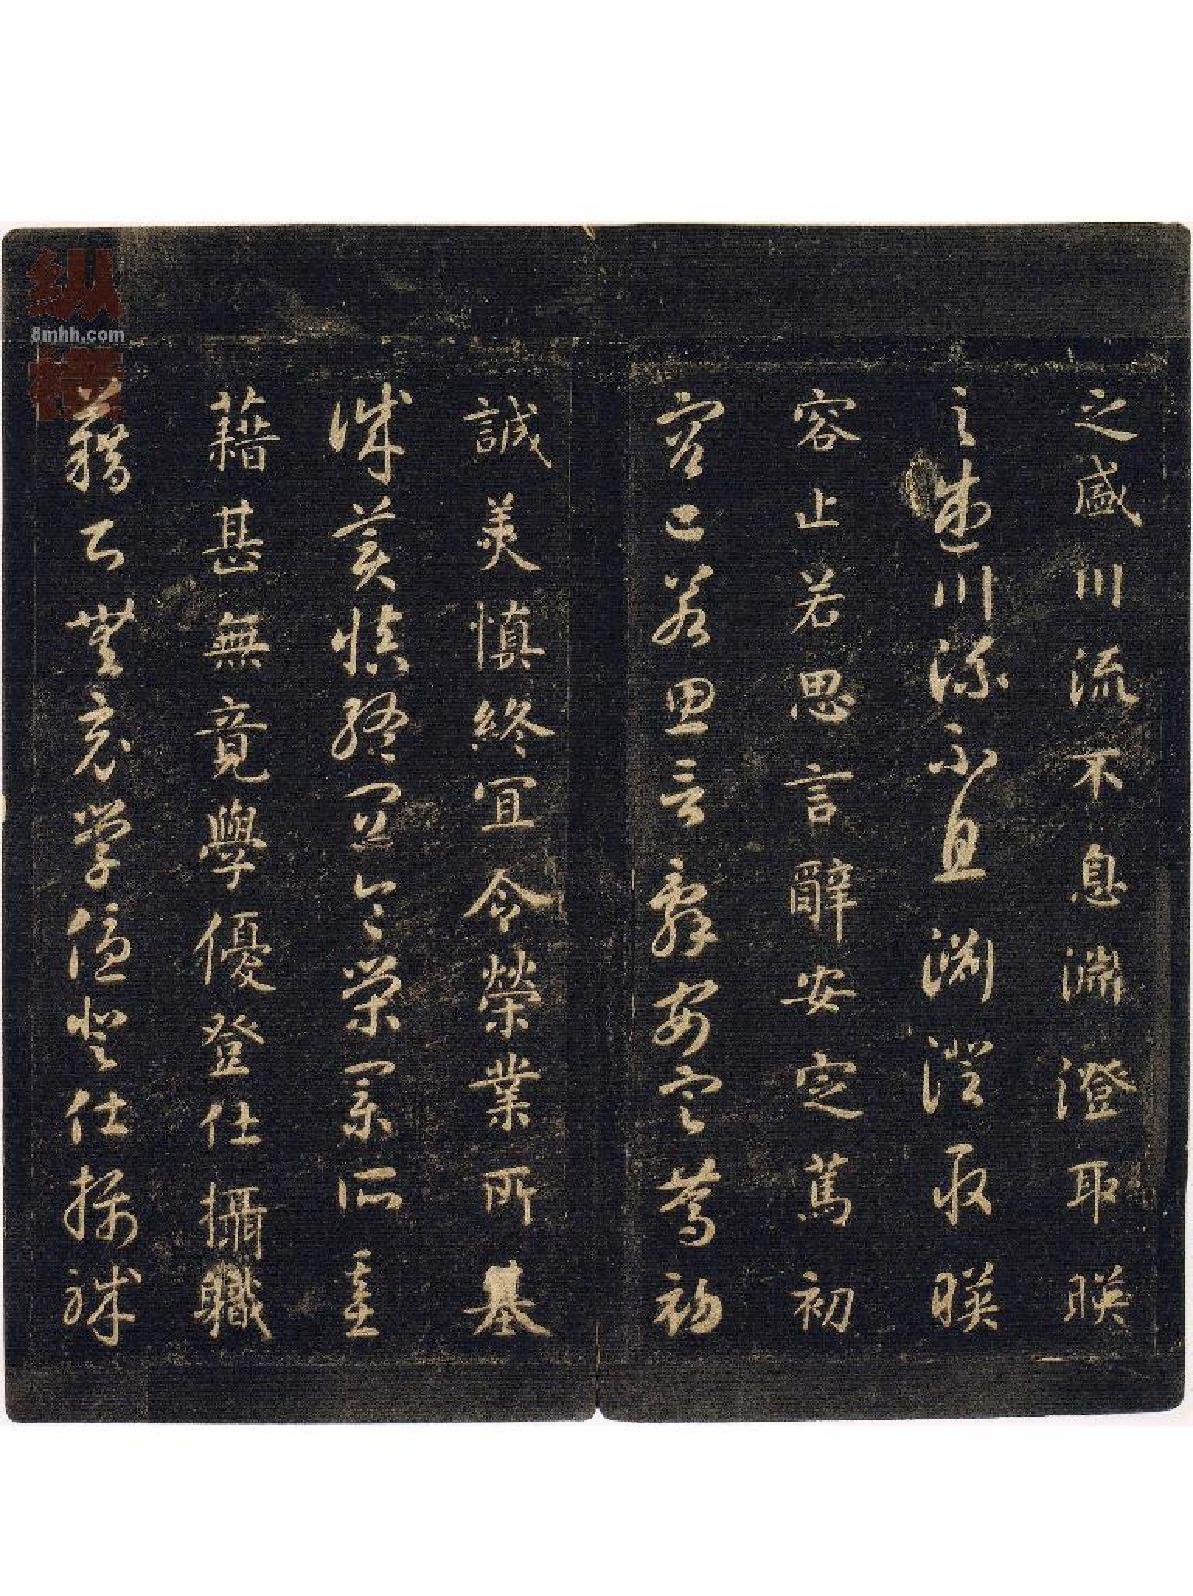 之盛川流不息淵澄取暎
之盛川流不息淵澄取暎
容止若思言辭安定篤初
容止若思言辭安定篤初
誠美慎終宜令榮業所基
誠美慎終宜令榮業所基
藉甚無竟學優登仕攝職
藉甚無竟學優登仕攝職
纵横
8mhh.com